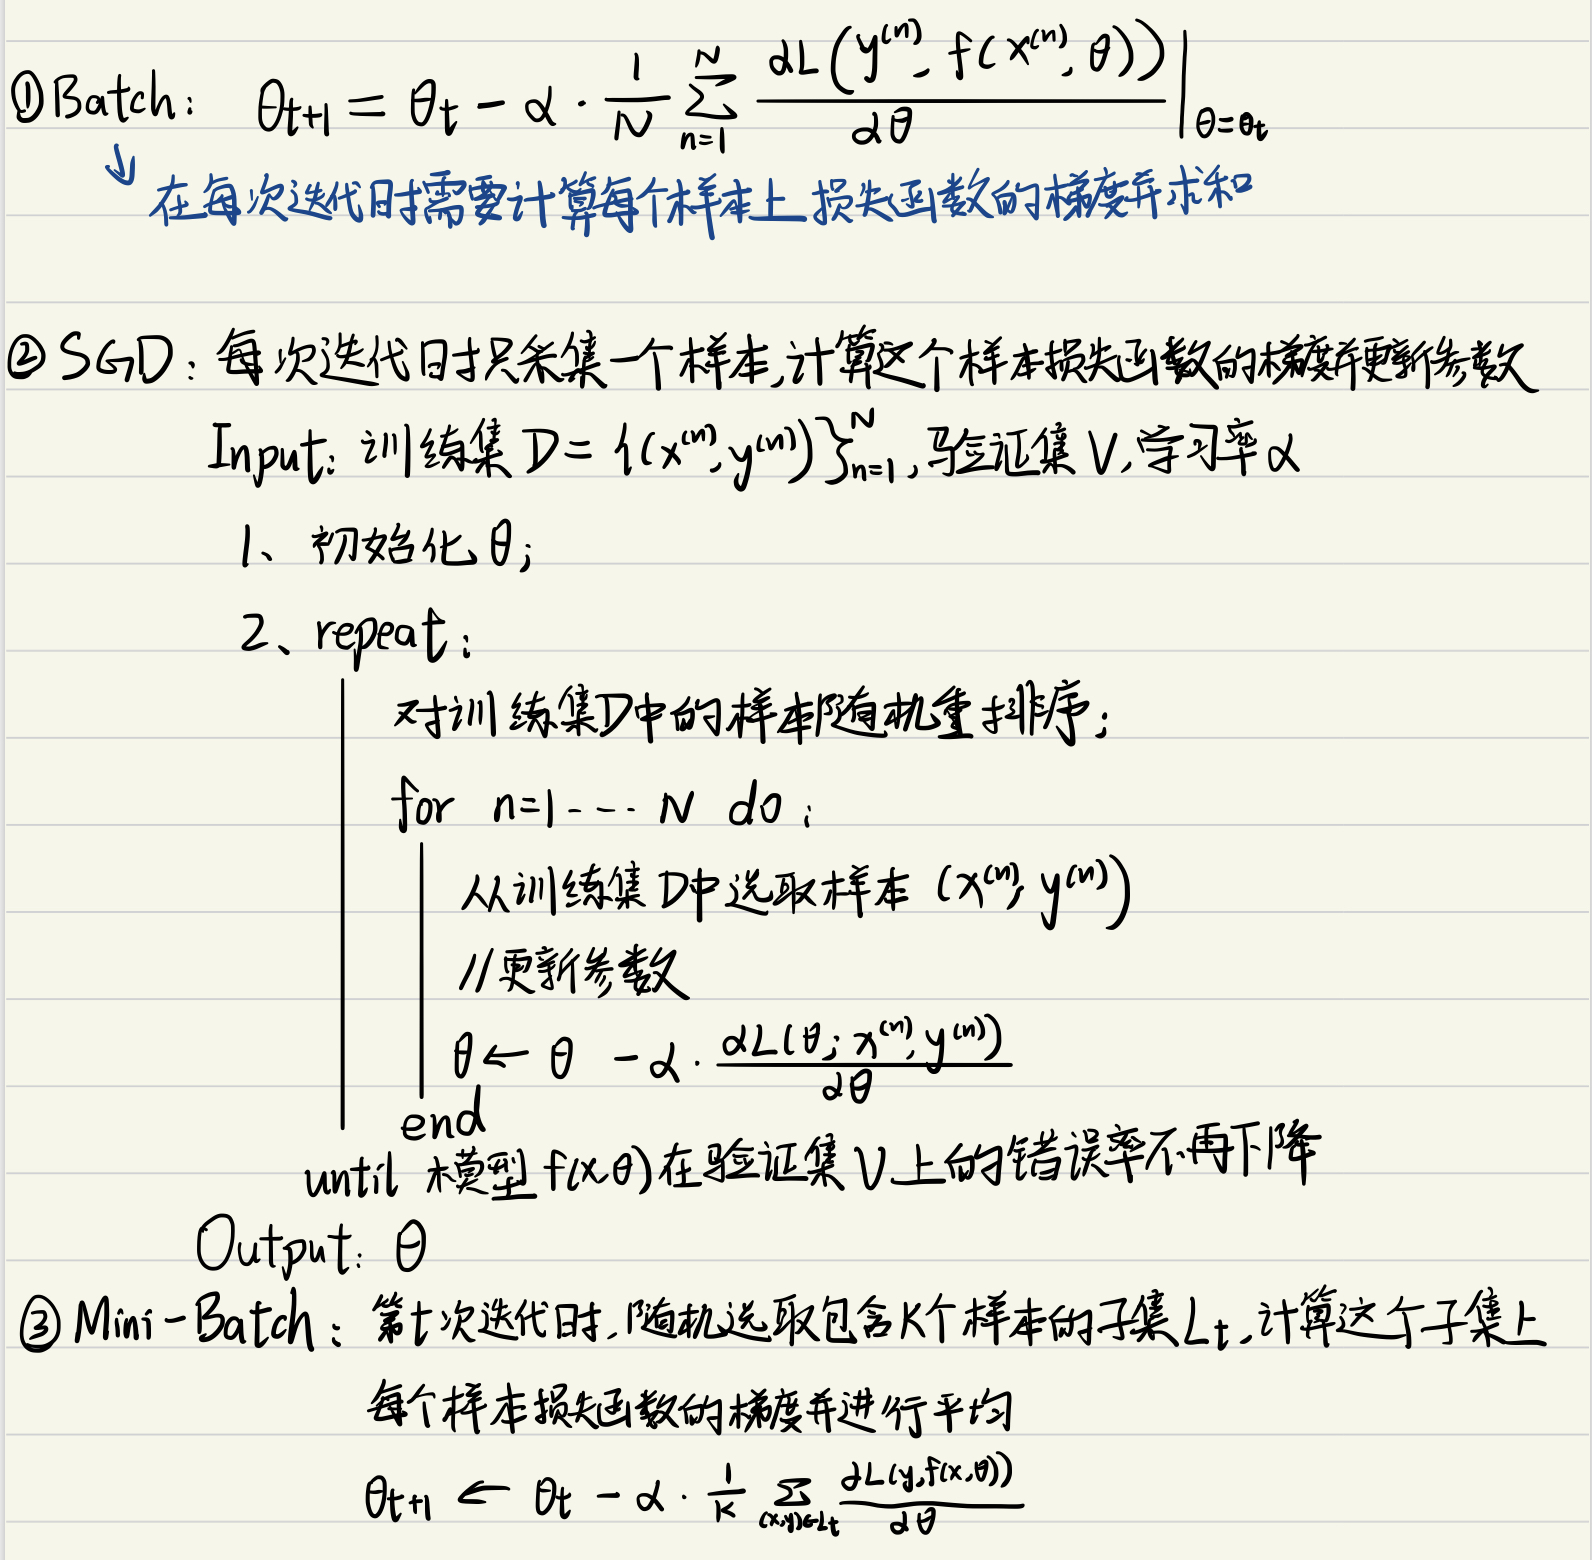 ①Batch: θt+1 = θt - α · 1/N ∑(n=1 to N) ∂L(y^(n), f(x^(n), θ))/∂θ |θ=θt
↓ 在每次迭代时需要计算每个样本上损失函数的梯度并求和
②SGD: 每次迭代时只采集一个样本,计算这个样本损失函数的梯度并更新参数
Input: 训练集 D = {(x^(n), y^(n))}^N_n=1, 验证集 V, 学习率 α
1、初始化 θ;
2、repeat:
对训练集D中的样本随机重排序;
for n=1---- N do:
从训练集D中选取样本 (x^(n), y^(n))
//更新参数
θ ← θ - α · ∂L(θ; x^(n), y^(n))/∂θ
end
until 模型 f(x,θ) 在验证集 V 上的错误率不再下降
Output: θ
③Mini-Batch: 第t次迭代时,随机选取包含K个样本的子集Lt,计算这个子集上
每个样本损失函数的梯度并进行平均
θt+1 ← θt - α · 1/K ∑(x,y)∈Lt ∂L(y,f(x,θ))/∂θ